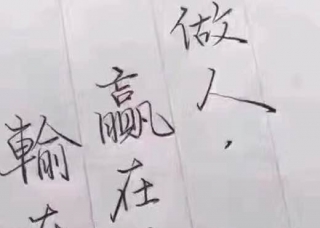 做人，
赢在
輸